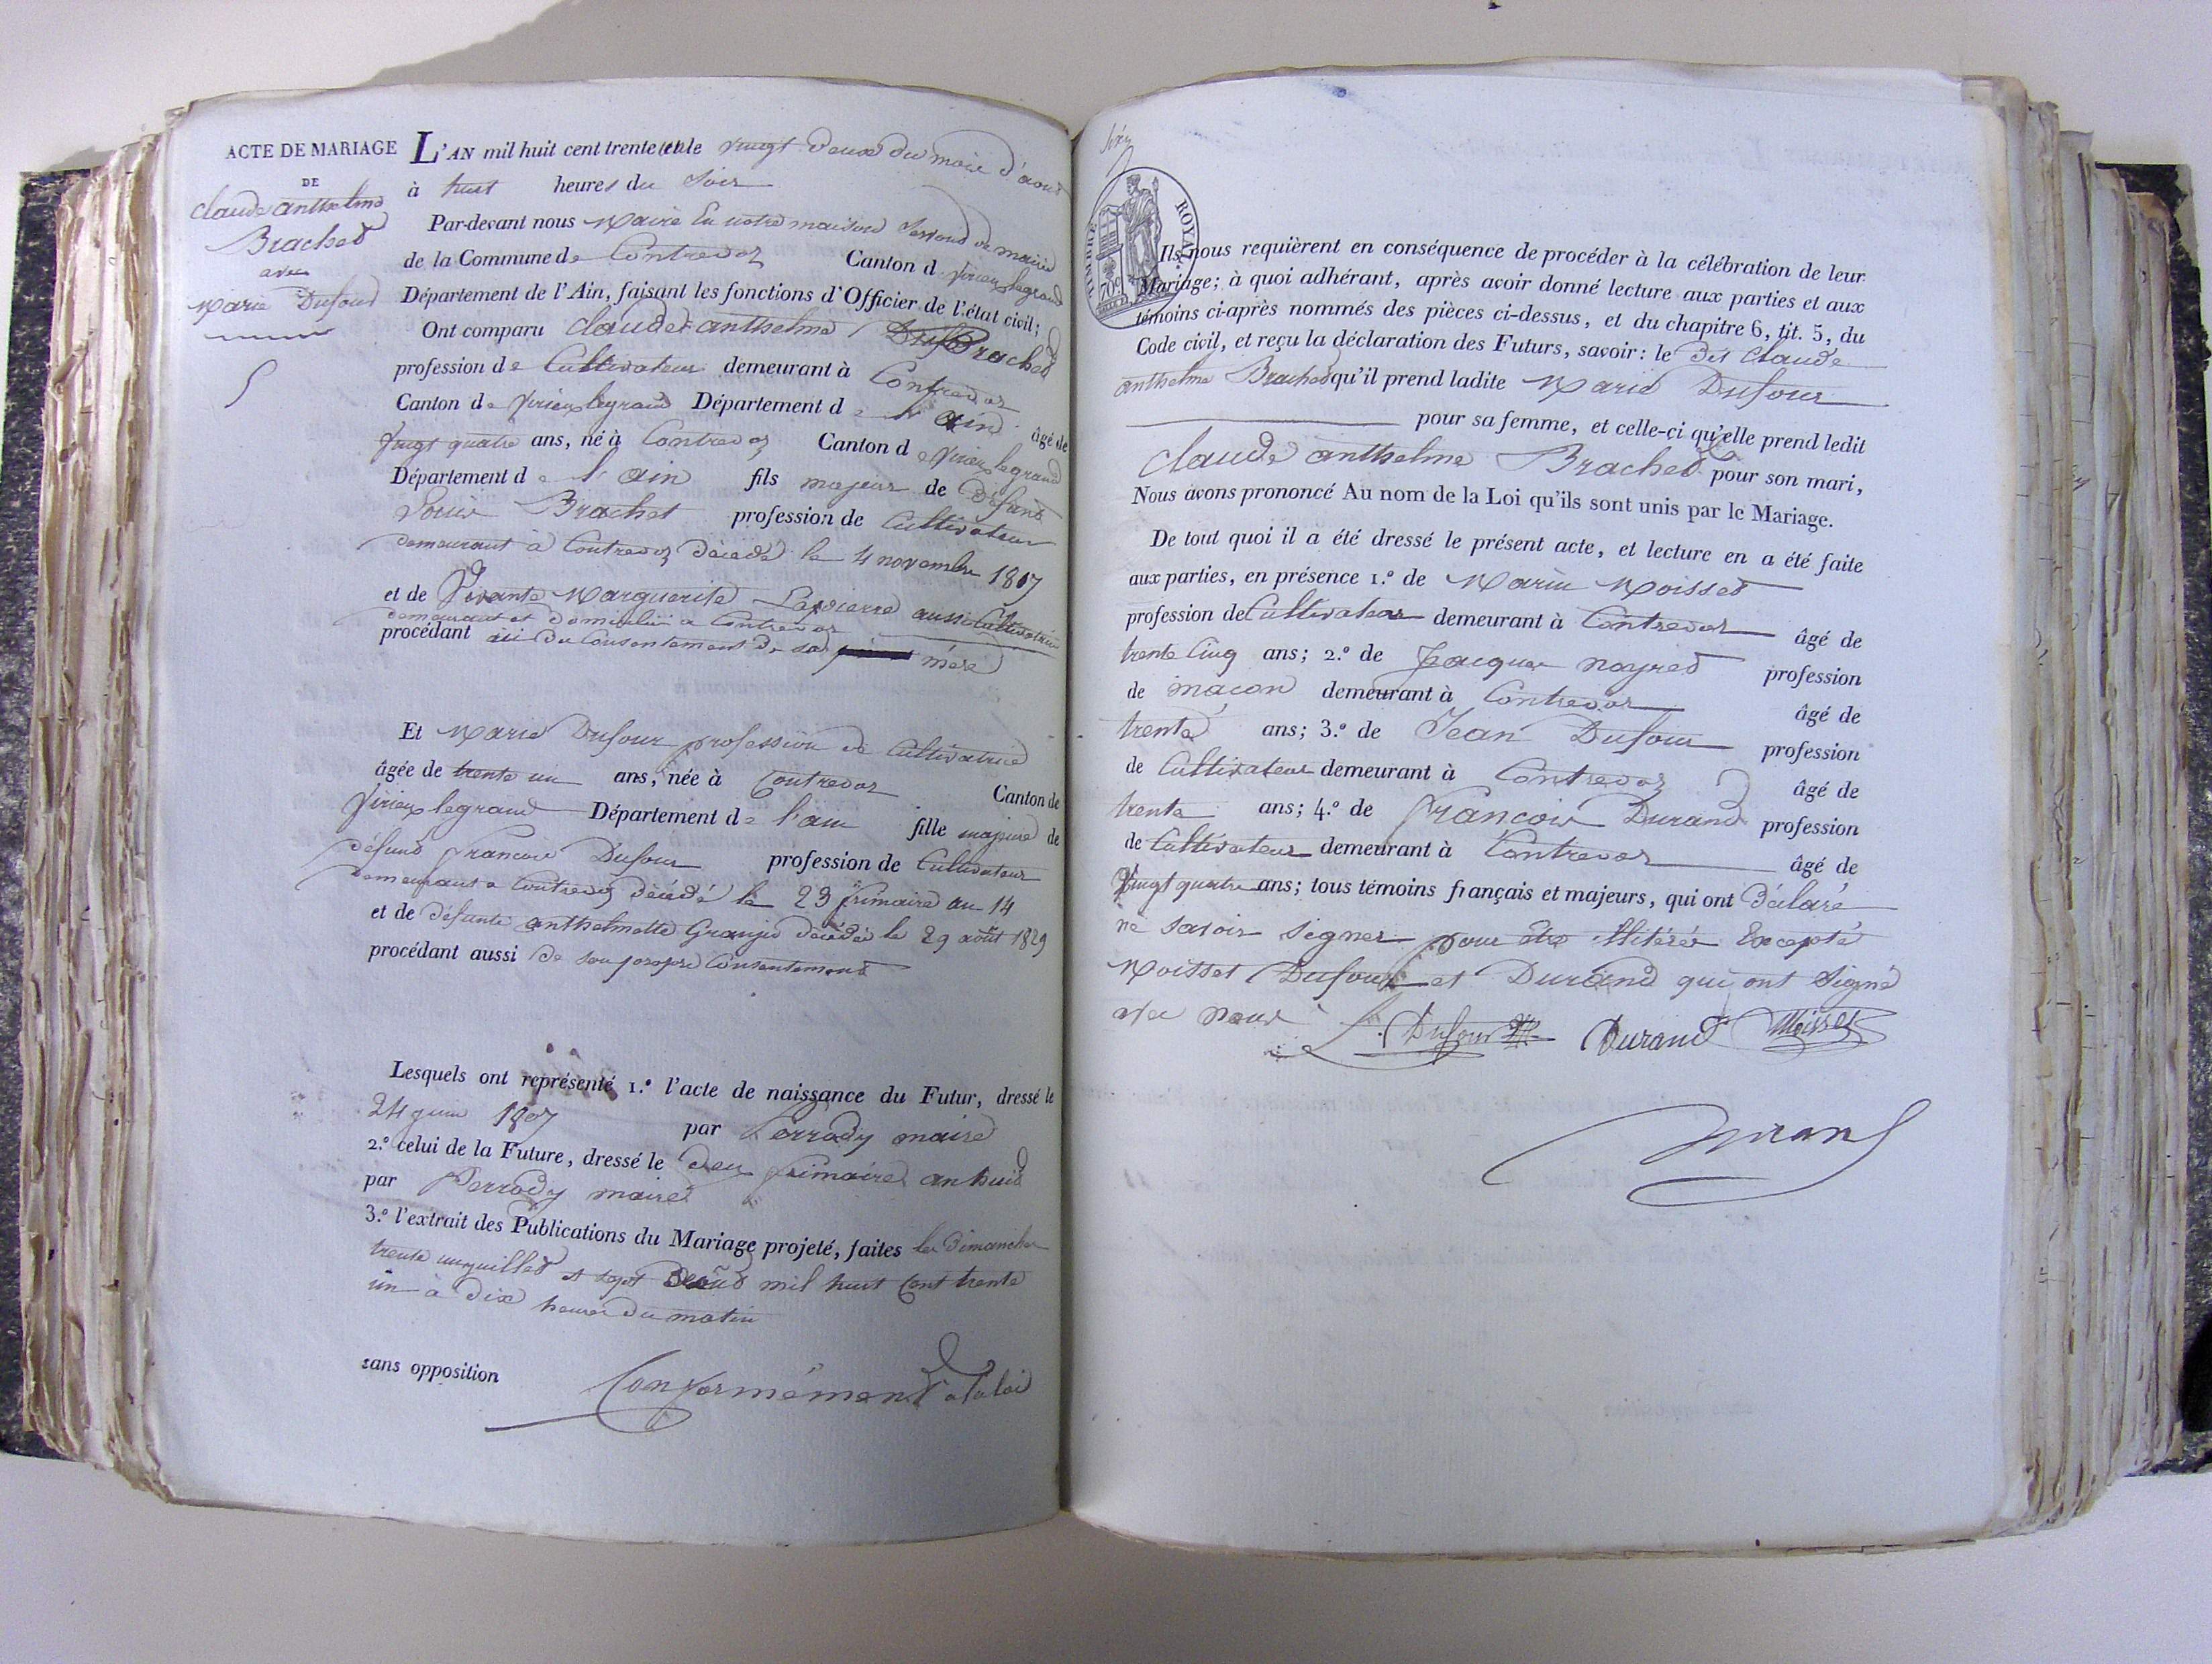 ACTE DE MARIAGE
DE
claude anthelme
Brachet
avec
Marie Dufour
5
L'AN mil huit cent trente un le vingt deux du mois d'aout
à huit heures du Soir
Par-devant nous Maire En notre maison servant de mairie
de la Commune de Contrevoz Canton de virieu legrand
Département de l'Ain, faisant les fonctions d'Officier de l'état civil;
Ont comparu claude anthelme Brached
profession de Cultivateur demeurant à Contrevoz
Canton de virieu legrand Département de l'Ain âgé de
vingt quatre ans, né à Contrevoz Canton de virieu legrand
Département de l'ain fils majeur de défunt
Louis Brachet profession de Cultivateur
demeurant à Contrevoz décédé le 4 novembre 1807
et de vivante Marguerite Lapierre aussi Cultivatrice
demeurant et domiciliée a Contrevoz
procédant du Consentement de sa mère
Et Marie Dufour profession de Cultivatrice
âgée de trente un ans, née à Contrevoz Canton de
virieu legrand Département de l'ain fille majeure de
défund francois Dufour profession de Cultivateur
demeurant a Contrevoz décédé le 23 frimaire an 14
et de défunte anthelmette Granjie décédée le 29 août 1829
procédant aussi de son propre Consentement
Lesquels ont représenté 1.º l'acte de naissance du Futur, dressé le
24 juin 1807 par Perrody maire
2.º celui de la Future, dressé le deux frimaire an huit
par Perrody maire
3.º l'extrait des Publications du Mariage projeté, faites les dimanche
trente un juillet et sept D'août mil huit Cent trente
un à dix heures du matin
sans opposition Conformément a la loi
TIMBRE ROYAL
70 c
Ils nous requièrent en conséquence de procéder à la célébration de leur
Mariage; à quoi adhérant, après avoir donné lecture aux parties et aux
témoins ci-après nommés des pièces ci-dessus, et du chapitre 6, tit. 5, du
Code civil, et reçu la déclaration des Futurs, savoir: le dit claude
anthelme Brached qu'il prend ladite Marie Dufour
pour sa femme, et celle-ci qu'elle prend ledit
claude anthelme Brached pour son mari,
Nous avons prononcé Au nom de la Loi qu'ils sont unis par le Mariage.
De tout quoi il a été dressé le présent acte, et lecture en a été faite
aux parties, en présence 1.º de Marin Moisset
profession de Cultivateur demeurant à Contrevoz âgé de
trente Cinq ans; 2.º de Jacques noyred profession
de maçon demeurant à Contrevoz âgé de
trente ans; 3.º de Jean Dufour profession
de Cultivateur demeurant à Contrevoz âgé de
trente ans; 4.º de francois Durand profession
de Cultivateur demeurant à Contrevoz âgé de
vingt quatre ans; tous témoins français et majeurs, qui ont déclaré
ne savoir signer pour être illitérés Excepté
Moisset Dufour et Durand qui ont signé
avec nous
Dufour Durand Moisset